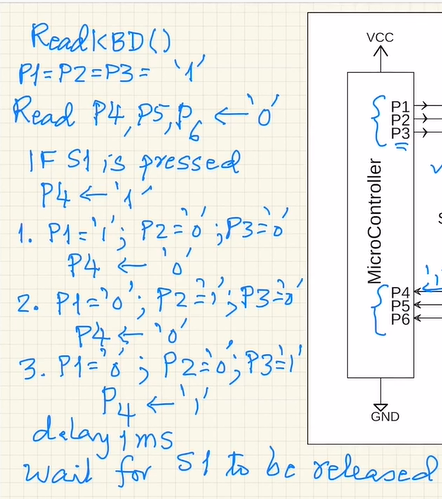 ReadKBD()
P1=P2=P3= '1'
Read P4, P5, P6 ← '0'
IF S1 is pressed
P4 ← '1'
1. P1='1'; P2='0'; P3='0'
P4 ← '0'
2. P1='0'; P2='1'; P3='0'
P4 ← '0'
3. P1='0'; P2='0'; P3='1'
P4 ← '1'
delay 1ms
wait for S1 to be released
VCC
P1
P2
P3
MicroController
'1'
P4
P5
P6
GND